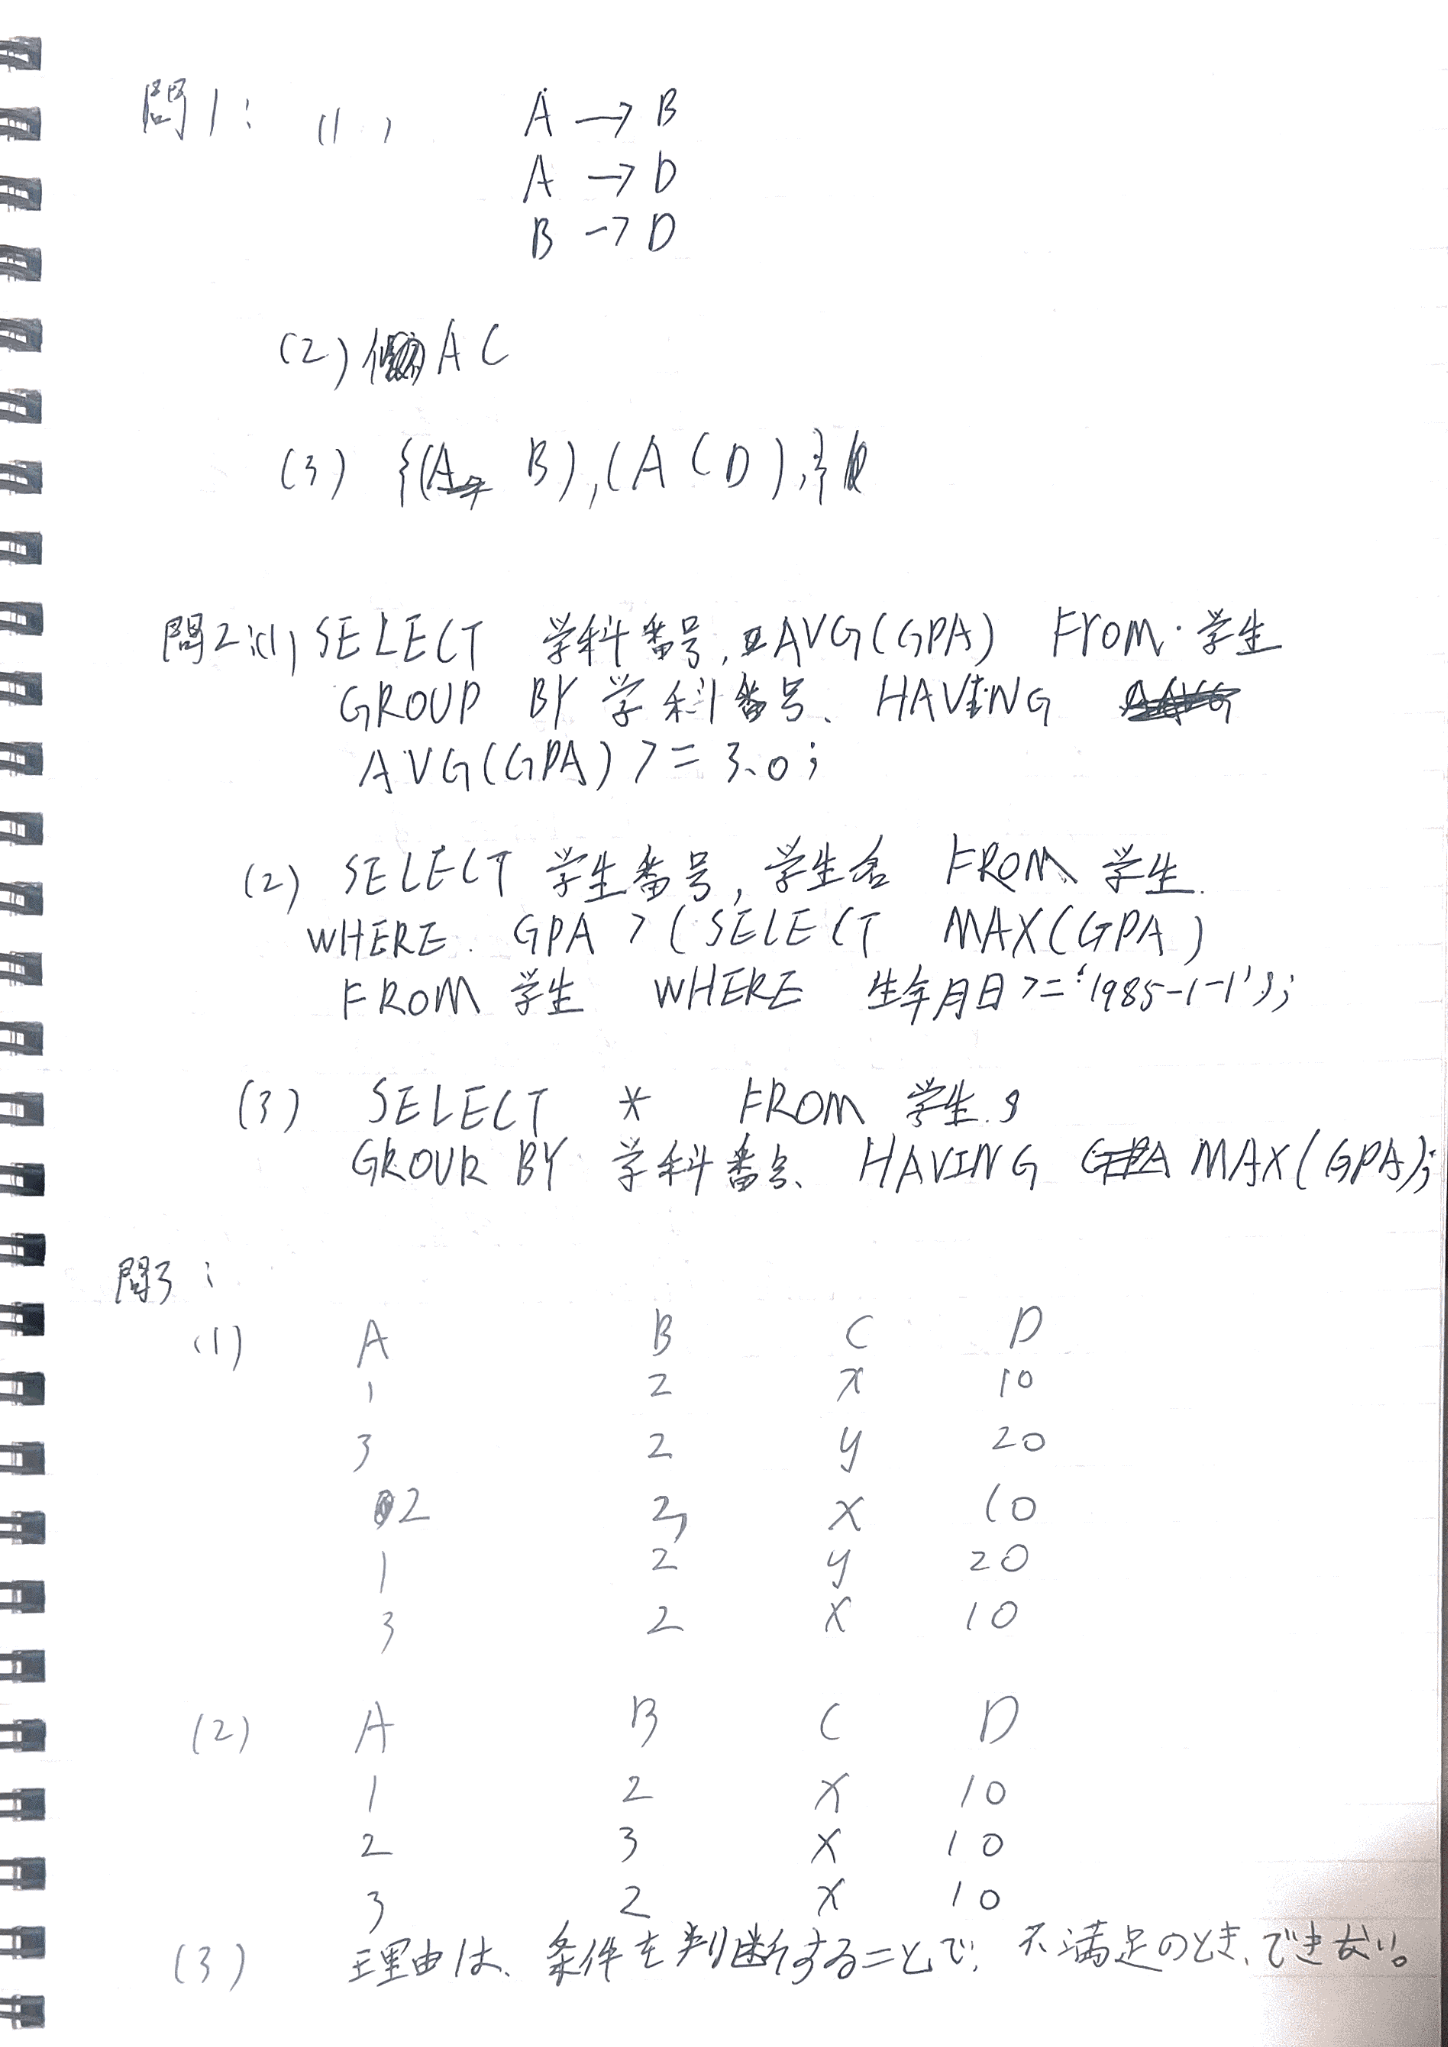 問1: (1) A → B
A → D
B → D
(2) A C
(3) {(A B),(A C D)}
問2:(1) SELECT 学科番号, AVG(GPA) FROM 学生
GROUP BY 学科番号 HAVING
AVG(GPA) >= 3.0;
(2) SELECT 学生番号, 学生名 FROM 学生
WHERE GPA > (SELECT MAX(GPA)
FROM 学生 WHERE 生年月日 >= '1985-1-1');
(3) SELECT * FROM 学生
GROUP BY 学科番号 HAVING MAX(GPA);
問3:
(1) A B C D
1 2 x 10
3 2 y 20
2 2 x 10
1 2 y 20
3 2 x 10
(2) A B C D
1 2 x 10
2 3 x 10
3 2 x 10
(3) 理由は、条件を判断することで、不満足のとき、できない。